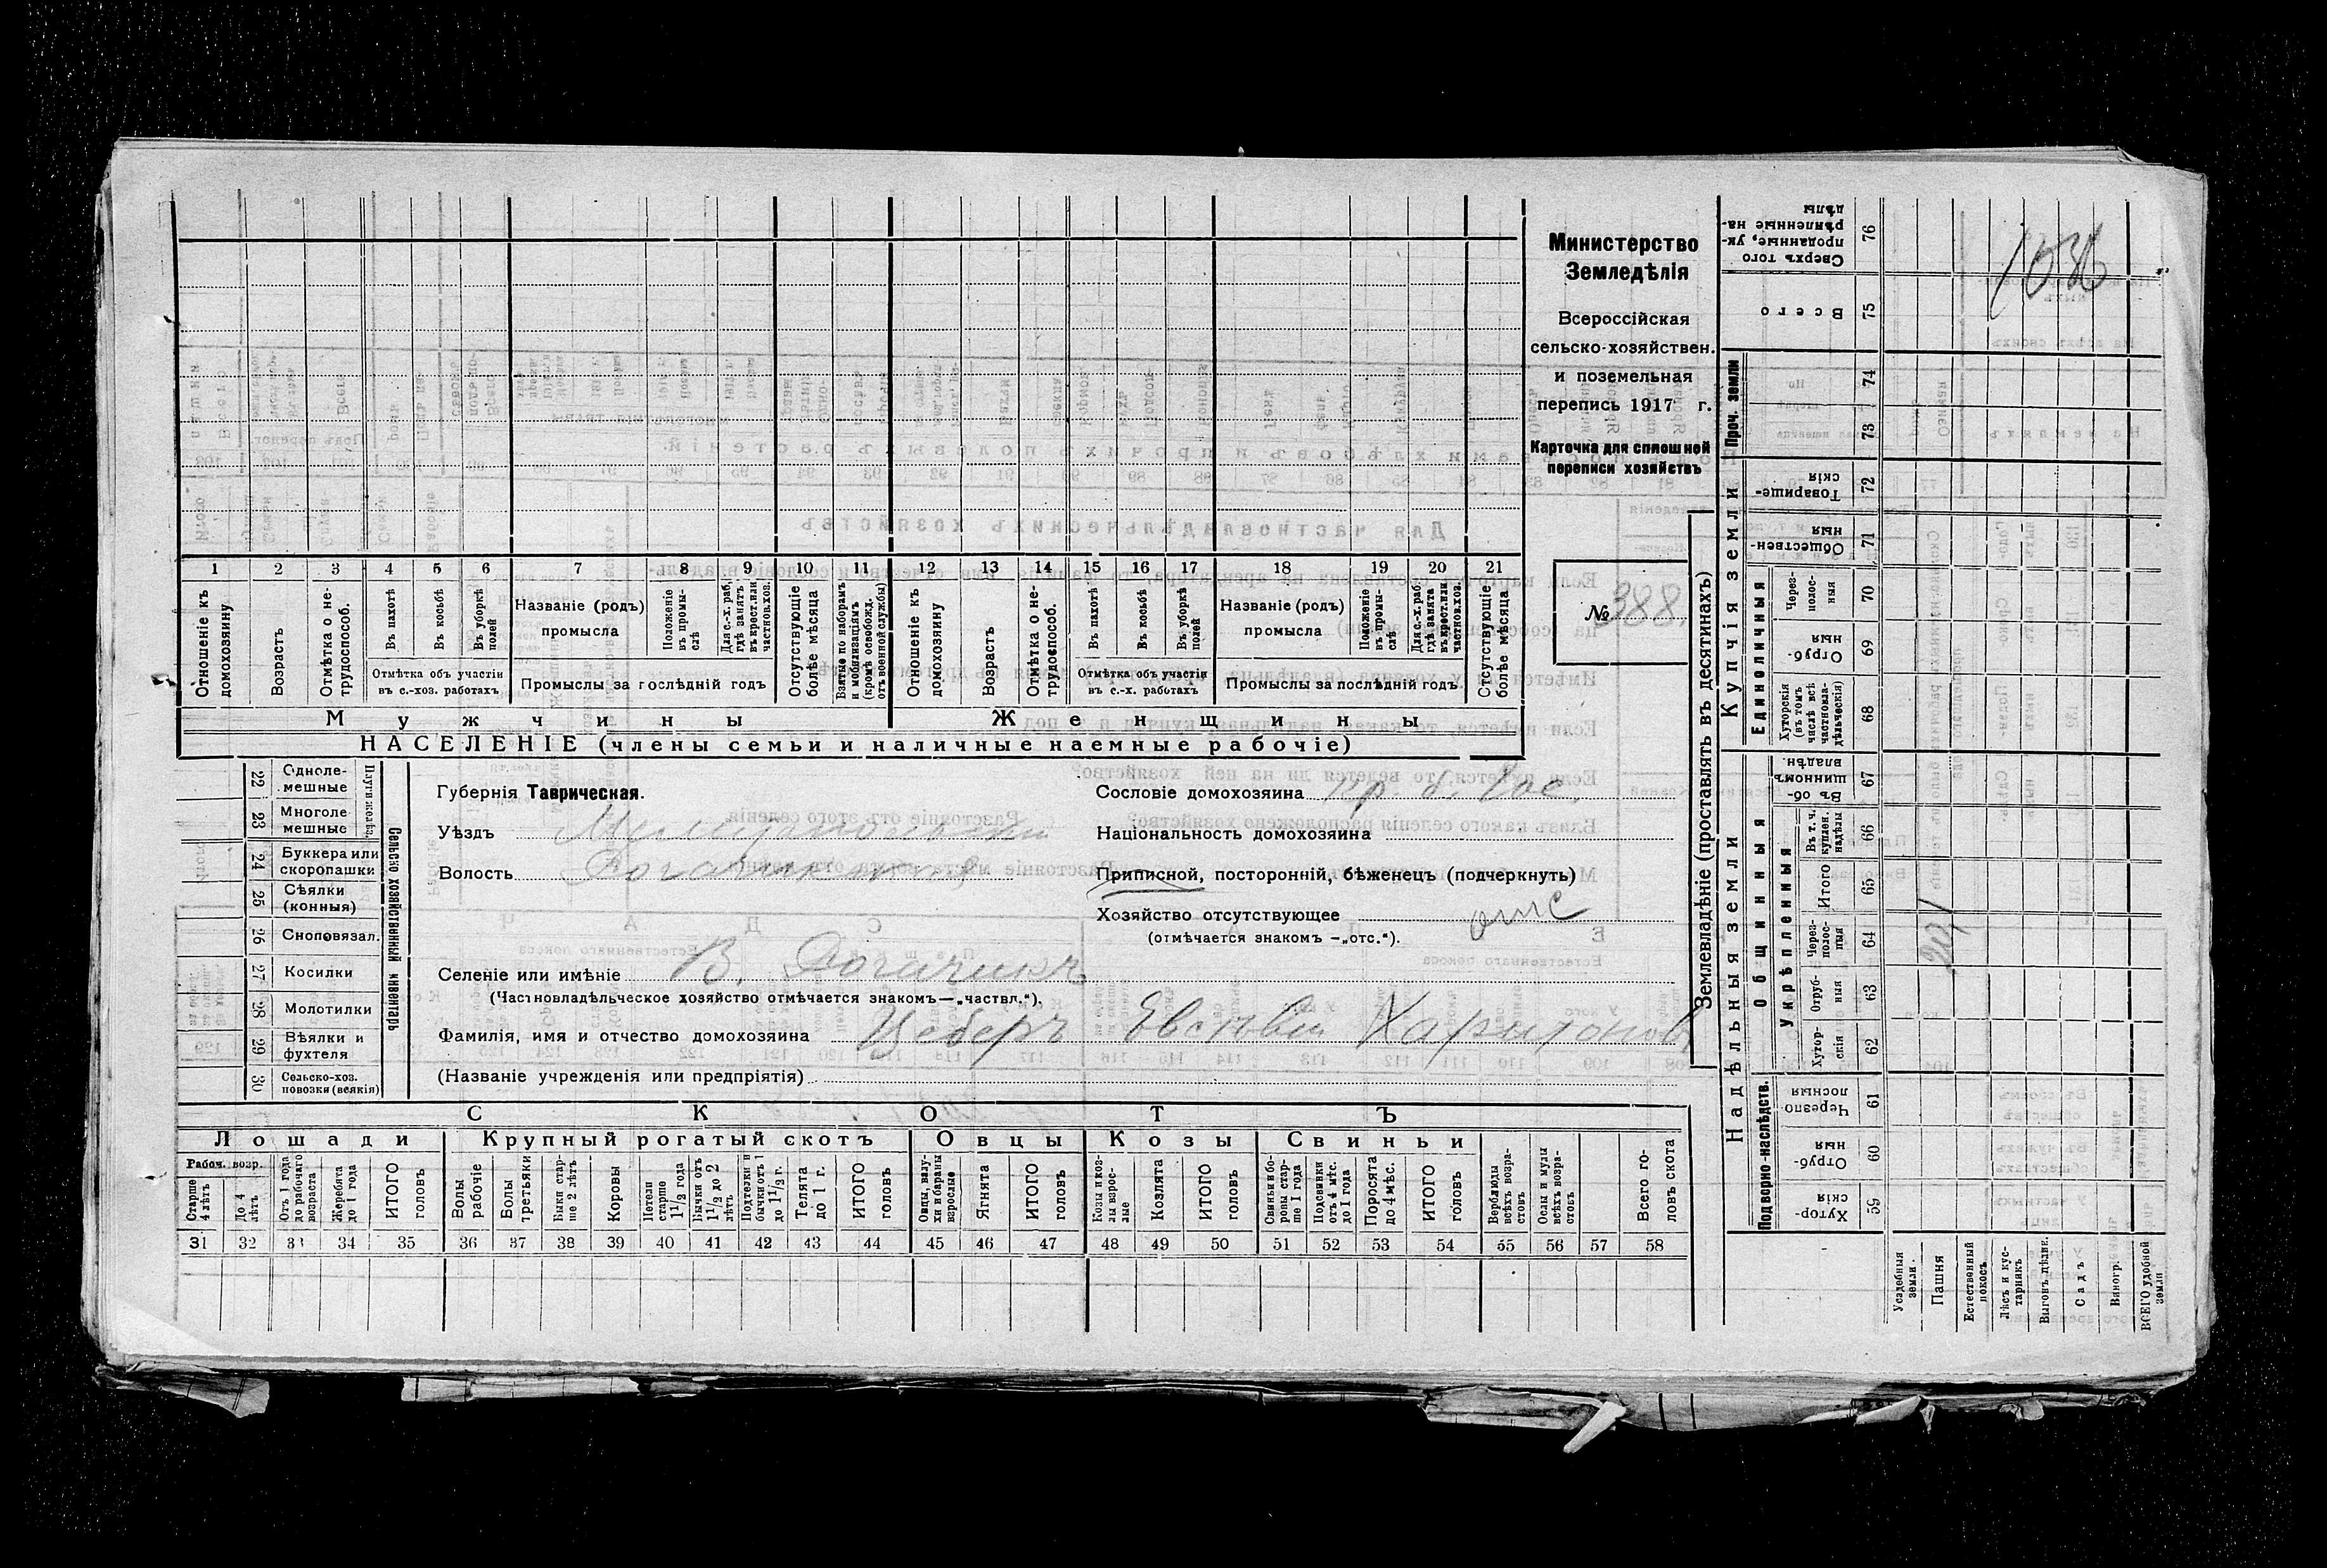 Министерство
Земледѣлія
Всероссійская
сельско-хозяйствен.
и поземельная
перепись 1917 г.
Карточка для сплошной
переписи хозяйствъ
№ 388
1 2 3 4 5 6 7 8 9 10 11 12 13 14 15 16 17 18 19 20 21
Отношеніе къ домохозяину
Возрастъ
Отмѣтка о не-трудоспособ.
Въ пахотѣ
Въ косьбѣ
Въ уборкѣ полей
Отмѣтка объ участіи
въ с.-хоз. работахъ
Названіе (родъ)
промысла
Положеніе въ промы-слѣ
Для с.-х. раб. гдѣ занятъ въ крест. или частнов. хоз.
Промыслы за послѣдній годъ
Отсутствующіе болѣе мѣсяца
Взятые по наборамъ и мобилизаціямъ (кромѣ освобожд. отъ военной службы)
Отношеніе къ домохозяину
Возрастъ
Отмѣтка о не-трудоспособ.
Въ пахотѣ
Въ косьбѣ
Въ уборкѣ полей
Отмѣтка объ участіи
въ с.-х. работахъ
Названіе (родъ)
промысла
Положеніе въ промы-слѣ
Для с.-х. раб. гдѣ занята въ крест. или частнов. хоз.
Промыслы за послѣдній годъ
Отсутствующіе болѣе мѣсяца
Мужчины
Женщины
НАСЕЛЕНІЕ (члены семьи и наличные наемные рабочіе)
Сельско хозяйственный инвентарь
22 Однолемешные
23 Многолемешные
24 Буккера или скоропашки
25 Сѣялки (конныя)
26 Сноповязал.
27 Косилки
28 Молотилки
29 Вѣялки и фухтеля
30 Сельско-хоз. повозки (всякія)
Губернія Таврическая.
Уѣздъ Мелитопольскій
Волость
Селеніе или имѣніе В. Рогачикъ
(Частновладѣльческое хозяйство отмѣчается знакомъ—„частвл.“).
Фамилія, имя и отчество домохозяина Цеберъ Евсѣвій Харитоновъ
(Названіе учрежденія или предпріятія)
Сословіе домохозяина кр. б. гос.
Національность домохозяина
Приписной, посторонній, бѣженецъ (подчеркнуть)
Хозяйство отсутствующее отс
(отмѣчается знакомъ —„отс.“).
СКОТЪ
Лошади
Крупный рогатый скотъ
Овцы
Козы
Свиньи
Рабоч. возр.
Старше 4 лѣтъ
До 4 лѣтъ
Отъ 1 года до рабочаго возраста
Жеребята до 1 года
ИТОГО головъ
Волы рабочіе
Волы третьяки
Быки старше 2 лѣтъ
Коровы
Нетели старше 1 1/2 года
Бычки отъ 1 1/2 до 2 лѣтъ
Подтелки и бычки отъ 1 до 1 1/2 г.
Телята до 1 г.
ИТОГО головъ
Овцы, валухи и бараны взрослые
Ягнята
ИТОГО головъ
Козы и козлы взрослые
Козлята
ИТОГО головъ
Свиньи и боровы старше 1 года
Подсвинки отъ 4 мѣс. до 1 года
Поросята до 4 мѣс.
ИТОГО головъ
Верблюды всѣхъ возрастовъ
Ослы и мулы всѣхъ возрастовъ
Всего головъ скота
31 32 33 34 35 36 37 38 39 40 41 42 43 44 45 46 47 48 49 50 51 52 53 54 55 56 57 58
Землевладѣніе (проставлять въ десятинахъ)
Надѣльныя земли
Купчія земли
Проч. земли
Подворно-наслѣдств.
Общинныя
Укрѣпленныя
Единоличныя
Сверхъ того проданные, укрѣпленные надѣлы 76
Всего 75
74
73
Товарищескія 72
Общественныя 71
Черезполосныя 70
Отрубныя 69
Хуторскія (въ томъ числѣ всѣ частновладѣльческія) 68
Въ общинномъ владѣн. 67
Въ т. ч. куплен. надѣлы 66
Итого 65
Черезполосныя 64
Отрубныя 63
Хуторскія 62
Черезполосныя 61
Отрубныя 60
Хуторскія 59
Усадебныя земли.
Пашня
Естественный покосъ
Лѣсъ и кустарникъ
Выгонъ дѣлян.
Садъ
Виногр.
ВСЕГО удобной земли